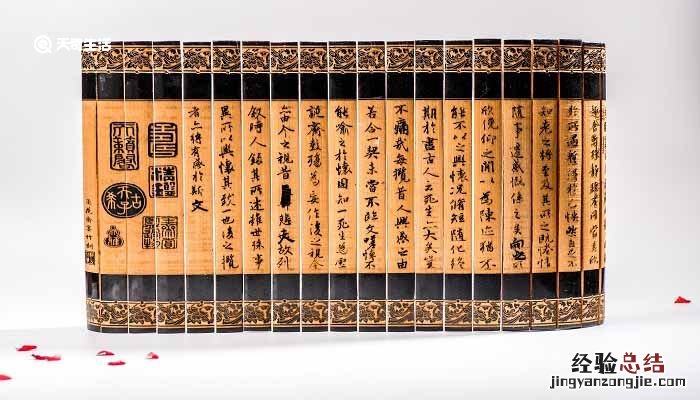 天奇生活
趣舍萬殊靜躁不同當其欣
於所遇暫得於己怏然自足不
知老之將至及其所之既惓情
隨事遷感慨係之矣向之所
欣俛仰之間以為陳迹猶不
能不以之興懷況脩短隨化終
期於盡古人云死生亦大矣豈
不痛哉每攬昔人興感之由
若合一契未嘗不臨文嗟悼不
能喻之於懷固知一死生為虛
誕齊彭殤為妄作後之視今
亦由今之視昔悲夫故列
敘時人錄其所述雖世殊事
異所以興懷其致一也後之攬
者亦將有感於斯文
经验总结
jingyanzongjie.com